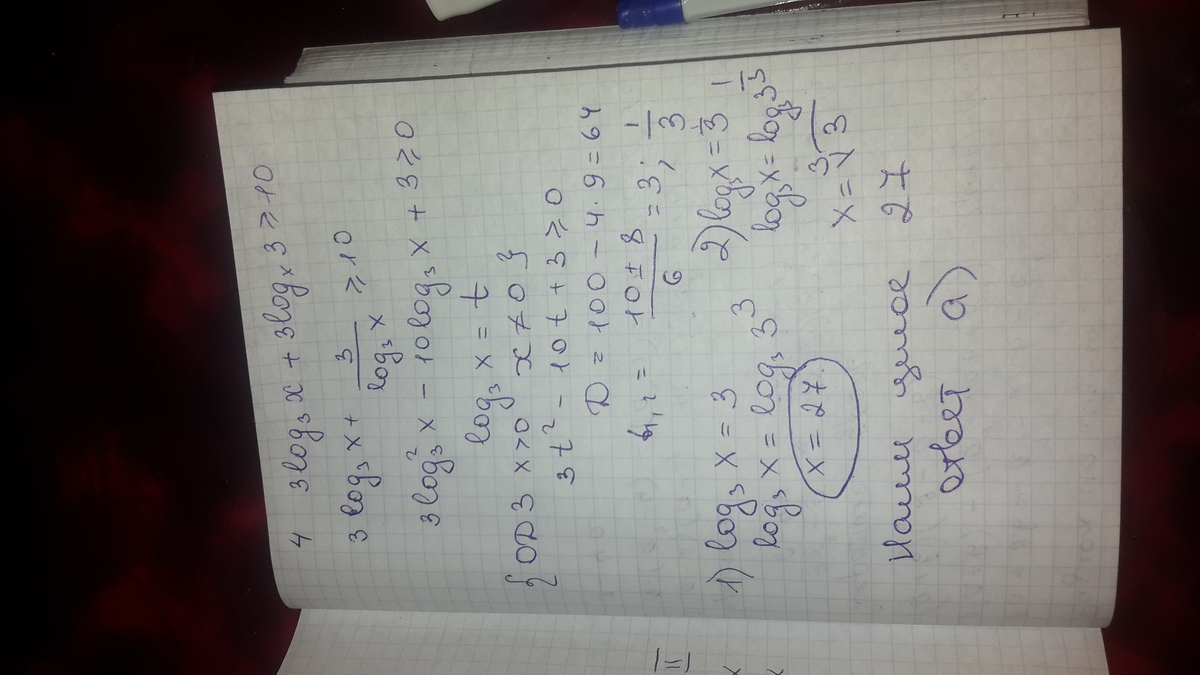 4 3log₃x + 3logₓ3 ≥ 10
3log₃x + 3/log₃x ≥ 10
3log₃²x - 10log₃x + 3 ≥ 0
log₃x = t
{ОДЗ x>0 x≠0}
3t² - 10t + 3 ≥ 0
D = 100 - 4·9 = 64
t₁,₂ = (10±8)/6 = 3; 1/3
1) log₃x = 3 2) log₃x = 1/3
log₃x = log₃3³ log₃x = log₃3^(1/3)
x = 27 x = ³√3
Наим целое 27
ответ а)